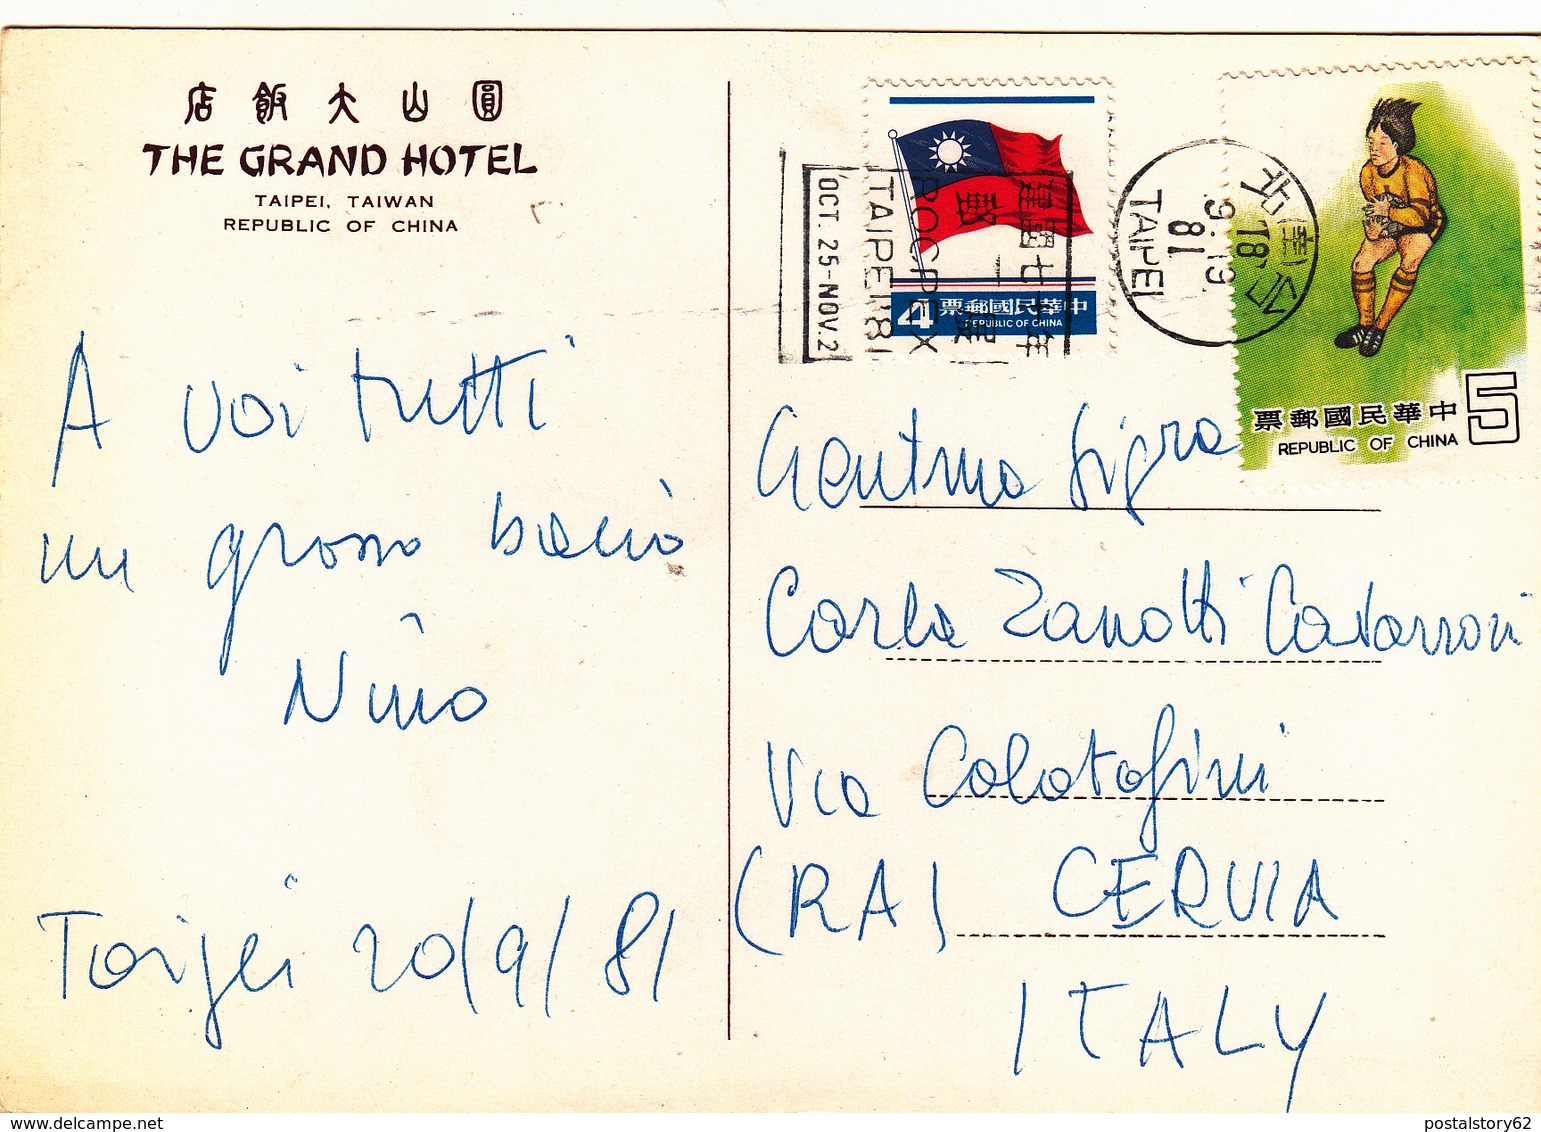 店飯大山圓
THE GRAND HOTEL
TAIPEI, TAIWAN
REPUBLIC OF CHINA
A voi tutti
un grosso bacio
Nino
Taipei 20/9/81
4
票郵國民華中
REPUBLIC OF CHINA
建國七十年
郵展
ROCPEX
TAIPEI'81
OCT. 25-NOV. 2
81
TAIPEI
5
票郵國民華中
REPUBLIC OF CHINA
Gentma Sigra
Carla Zanotti Casarroni
Via Colatofini
(RA) CERVIA
ITALY
delcampe.net
postalstory62